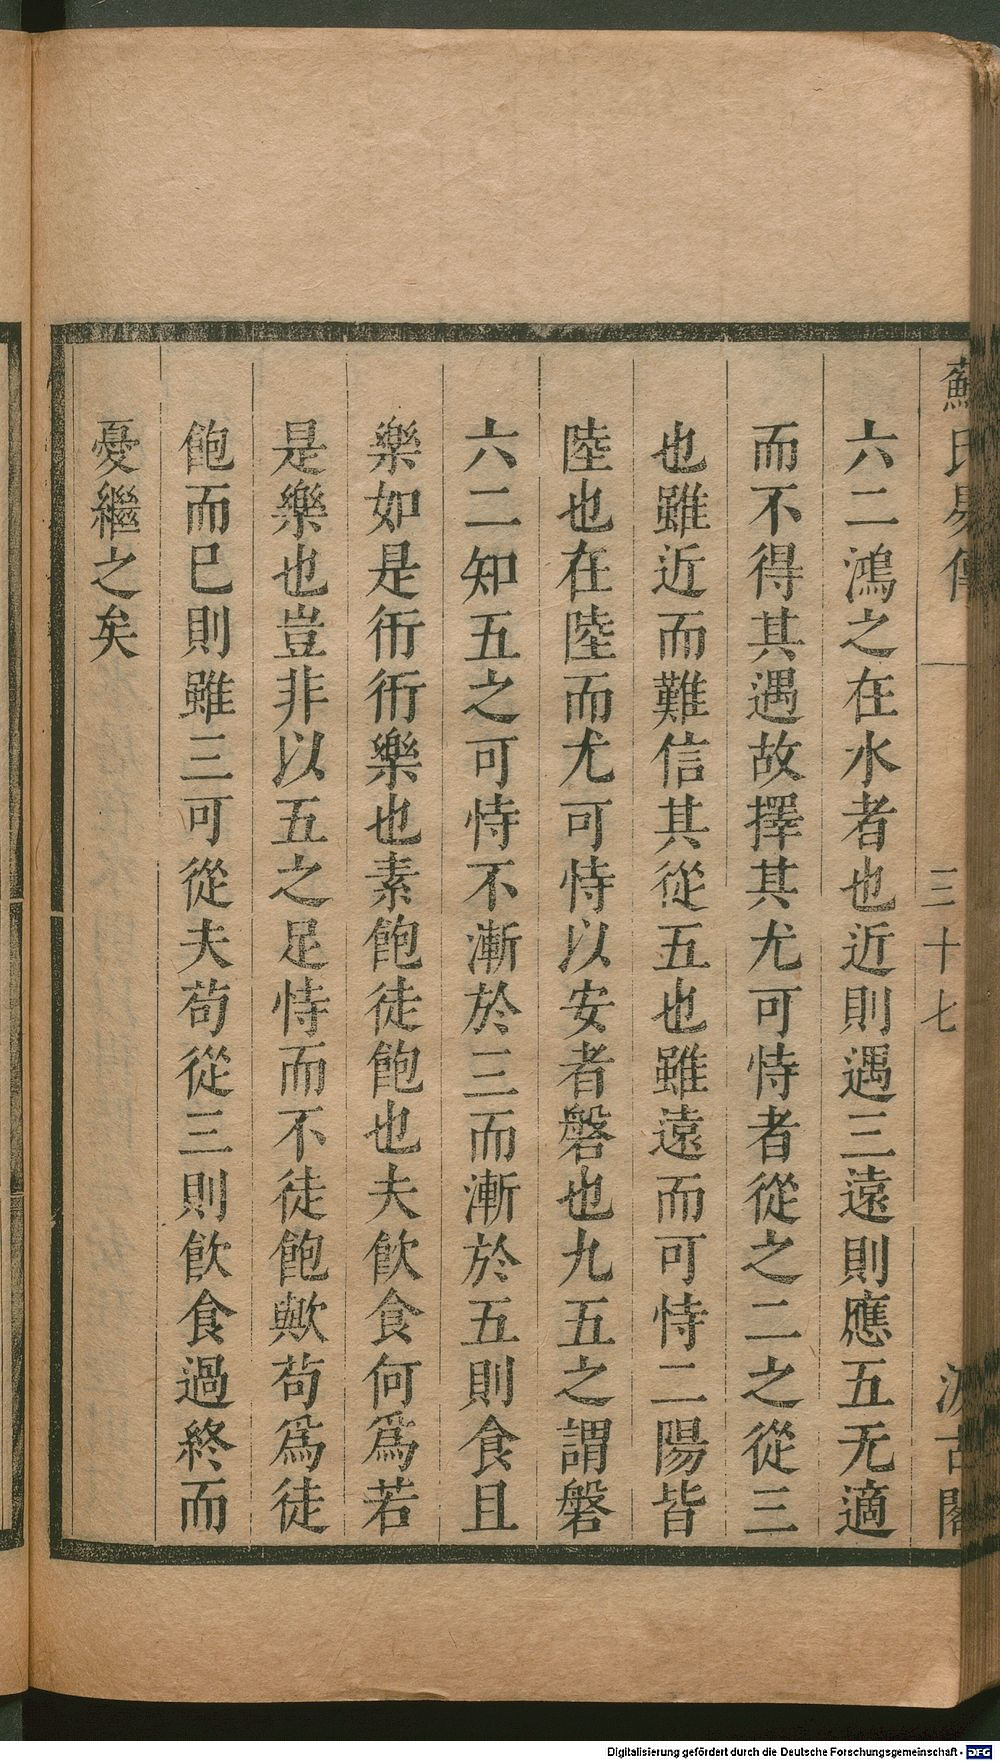 蘇氏易傳 三十七 汲古閣
六二鴻之在水者也近則遇三遠則應五无適
而不得其遇故擇其尤可恃者從之二之從三
也雖近而難信其從五也雖遠而可恃二陽皆
陸也在陸而尤可恃以安者磐也九五之謂磐
六二知五之可恃不漸於三而漸於五則食且
樂如是衎衎樂也素飽徒飽也夫飲食何爲若
是樂也豈非以五之足恃而不徒飽歟苟爲徒
飽而已則雖三可從夫苟從三則飲食過終而
憂繼之矣
Digitalisierung gefördert durch die Deutsche Forschungsgemeinschaft - DFG